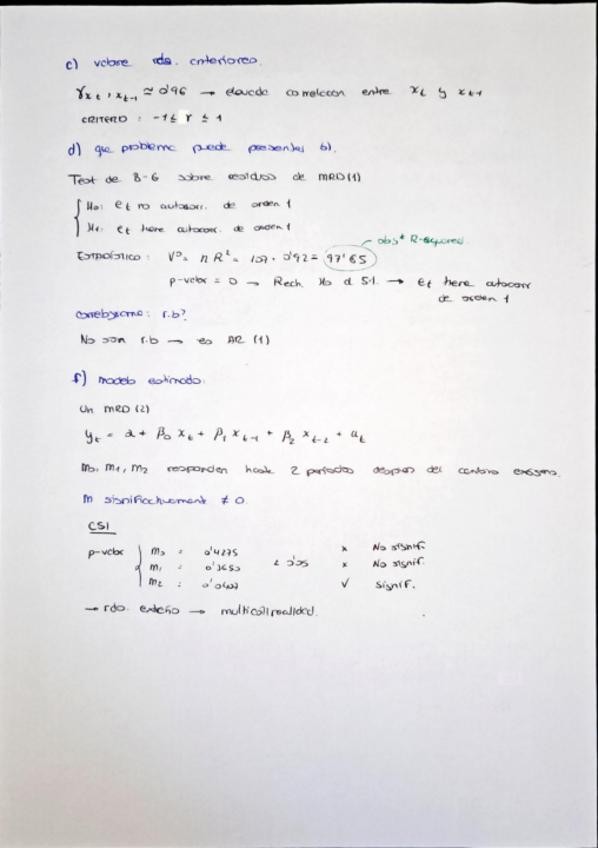 c) valore rdo. anteriores.
γxt, xt-1 ≃ 0'96 → elevada correlación entre xt y xt-1
CRITERIO : -1 ≤ r ≤ 1
d) que problema puede presentar b).
Test de B-G sobre residuos de MRD(1)
H0: et no autocorr. de orden 1
H1: et tiene autocorr. de orden 1
obs* R-squared.
ESTADÍSTICO : = n R² = 107 · 0'92 = 97'65
p-valor = 0 → Rech. H0 al 5%. → et tiene autocorr
de orden 1
correlograma: r.b?
No son r.b → es AR (1)
f) modelo estimado.
Un MRD (2)
yt = α + β0 xt + β1 xt-1 + β2 xt-2 + ut
m0, m1, m2 responden hasta 2 periodos después del cambio exógeno.
m significativamente ≠ 0.
CSI
p-valor m0 : 0'4275 x No signif.
m1 : < 0'05 x No signif.
m2 : ✓ signif.
→ rdo. extraño → multicolinealidad.